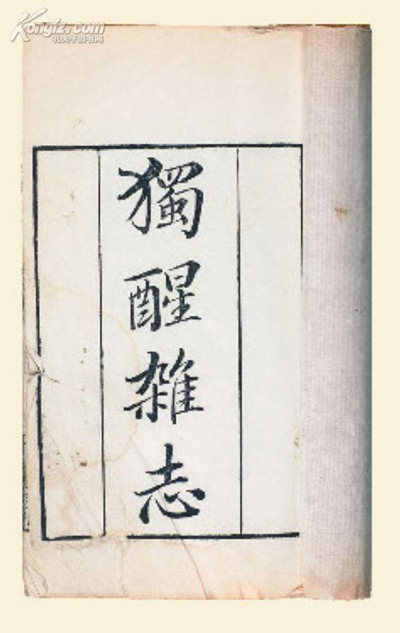 Kongfz.com
孔夫子旧书网
獨醒雜志